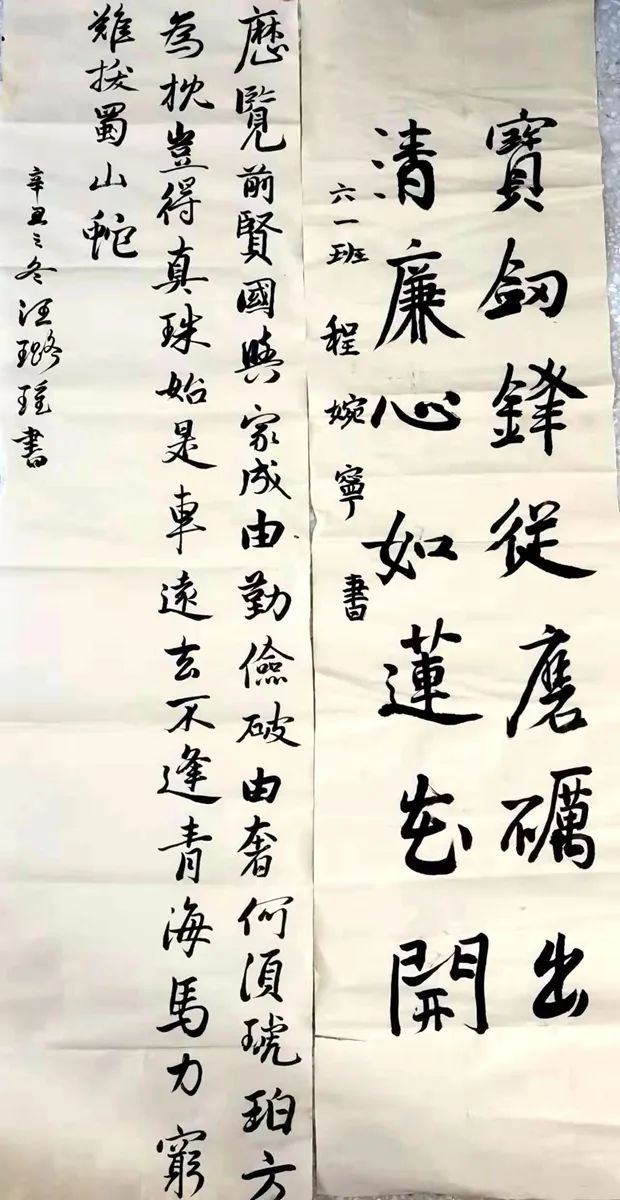 寶劍鋒從磨礪出
清廉心如蓮花開
六一班 程婉寧 書
歷覽前賢國與家成由勤儉破由奢何須琥珀方
為枕豈得真珠始是車遠去不逢青海馬力窮
難拔蜀山蛇
辛丑之冬汪璐瑶書